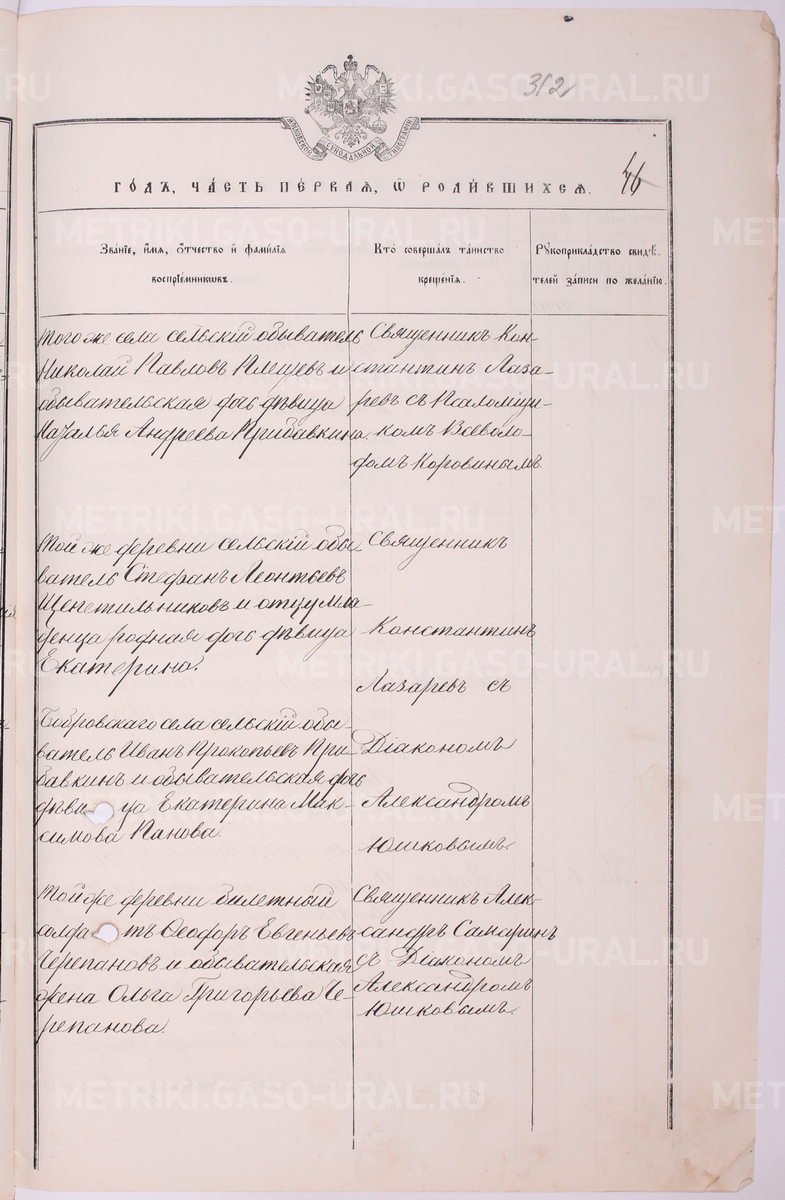 312
МОСКОВСКОЙ СѴНОДАЛЬНОЙ ТИПОГРАФІИ
46
ГОДЪ, ЧАСТЬ ПЕРВАЯ, Ѡ РОДИ́ВШИХСЯ.
Зва́ніе, и́мя, о́тчество и҆ фами́лія
воспріе́мникѡвъ.
Кто̀ соверша́лъ та́инство
креще́нія.
Рꙋкоприкла́дство свидѣ́-
телей за́писи по жела́нію.
Того же села сельскій обыватель
Николай Павловъ Плещевъ и
обывательская дочь дѣвица
Наталья Андреева Прибавкина.
Священникъ Кон
стантинъ Лаза-
ревъ съ Псаломщи-
комъ Всеволо-
домъ Коровинымъ.
Той же деревни сельскій обы-
ватель Стефанъ Леонтьевъ
Щепетильниковъ и отцу мла-
денца родная дочь дѣвица
Екатерина.
Священникъ
Константинъ
Лазаревъ съ
Бобровскаго села сельскій обы-
ватель Иванъ Прокопьевъ При-
бавкинъ и обывательская дочь
дѣвица Екатерина Мак-
симова Панова.
Діакономъ
Александромъ
Юшковымъ.
Той же деревни билетный
солдатъ Ѳеодоръ Евгеньевъ
Черепановъ и обывательская
жена Ольга Григорьева Че-
репанова.
Священникъ Алек-
сандръ Самаринъ
съ Діакономъ
Александромъ
Юшковымъ.
METRIKI.GASO-URAL.RU